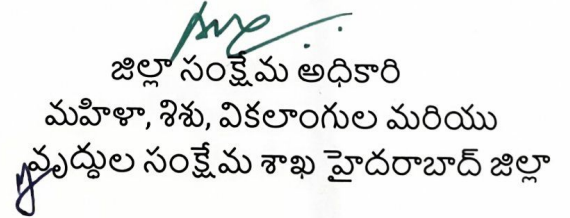 జిల్లా సంక్షేమ అధికారి
మహిళా, శిశు, వికలాంగుల మరియు
వృద్ధుల సంక్షేమ శాఖ హైదరాబాద్ జిల్లా